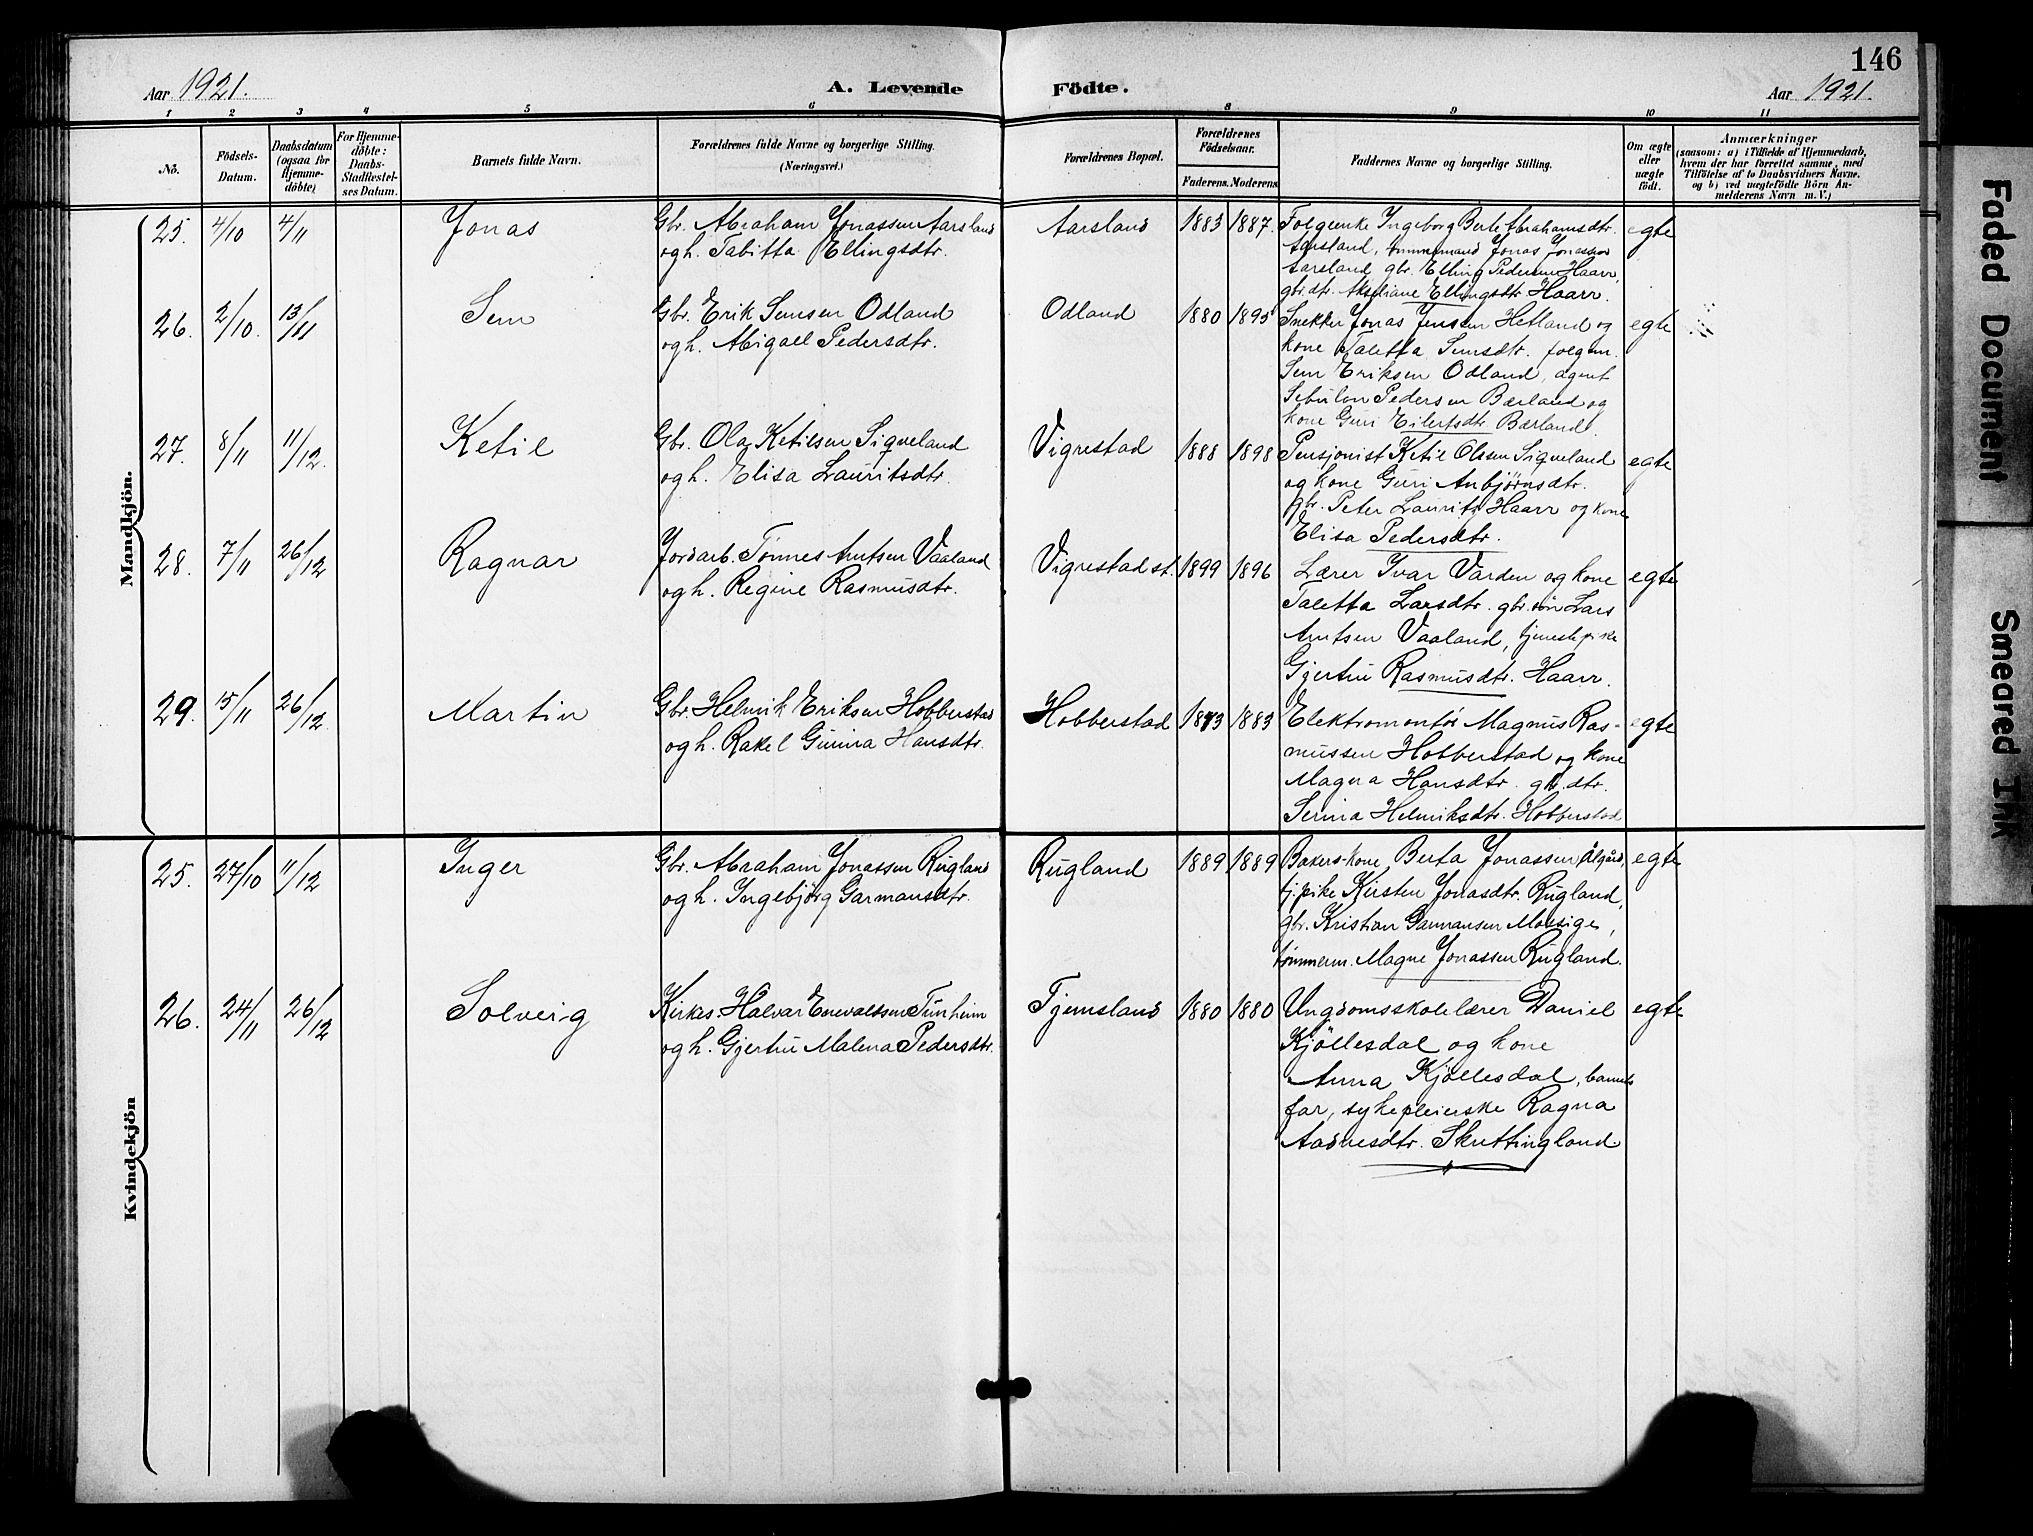 146
Aar 1921. A. Levende Födte. Aar 1921.
1 2 3 4 5 6 8 9 10 11
No.
Födsels-Datum.
Daabsdatum (ogsaa for Hjemmedöbte)
For Hjemmedöbte: Daabs-Stadfæstelses Datum.
Barnets fulde Navn.
Forældrenes fulde Navne og borgerlige Stilling. (Næringsvei.)
Forældrenes Bopæl.
Forældrenes Födselsaar.
Faderens. Moderens.
Faddernes Navne og borgerlige Stilling.
Om ægte eller uægte födt.
Anmærkninger
(saasom: a) i Tilfælde af Hjemmedaab,
hvem der har forrettet samme, med
Tilföielse af to Daabsvidners Navne.
og b) ved uægtefödte Börn An-
melderens Navn m. V.)
Mandkjön.
25. 4/10 4/11 Jonas Gbr. Abraham Jonassen Aarsland Aarsland 1883 1887. Folgeenke Ingeborg Berte Abrahamsdtr. egte
og h. Tabitta Ellingsdtr. Aarsland, tømmermand Jonas Jonassen
Aarsland, gbr. Elling Pedersen Haarr,
gbr.dtr. Akseliane Ellingsdtr. Haarr.
26. 2/10. 13/11 Sem Gbr. Erik Semsen Odland Odland 1880 1895 Snekker Jonas Jensen Hetland og egte
og h. Abigael Pedersdtr. kone Taletta Semsdtr. folgem.
Sem Eriksen Odland, agent
Sebulon Pedersen Bærland og
kone Guri Eilertsdtr. Bærland.
27. 8/11 11/12. Ketil Gbr. Ola Ketilsen Siqveland Vigrestad 1888 1898 Pensjonist Ketil Olsen Siqveland egte
og h. Elisa Lauritsdtr. og kone Guri Anbjørnsdtr.
gbr. Peter Laurits Haarr og kone
Elisa Pedersdtr.
28. 7/11 26/12 Ragnar Jordarb. Tønnes Amtsen Vaaland Vigrestad st. 1899 1896 Lærer Ivar Varden og kone egte
og h. Regine Rasmusdtr. Taletta Larsdtr. gbr. søn Lars
Amtsen Vaaland, tjenestepike
Gjertru Rasmusdtr. Haarr.
29. 15/11 26/12. Martin Gbr. Helmik Eriksen Hobberstad Hobberstad 1883 Elektromontør Magnus Ras- egte
og h. Rakel Gurina Hansdtr. mussen Hobberstad og kone
Magna Hansdtr. gbr. dtr.
Serina Helmiksdtr. Hobberstad
Kvindekjön
25. 27/10 11/12 Inger Gbr. Abraham Jonassen Rugland Rugland 1889 1889 Bakers kone Berta Jonassen Ålgård, egte
og h. Ingebjørg Garmansdtr. tj.pike Kirsten Jonasdtr. Rugland,
gbr. Kristian Garmansen Motsige,
tømmerm. Magne Jonassen Rugland.
26. 24/11 26/12 Solveig Kirkes. Halvar Enevaldsen Tunheim Tjemsland 1880 1880 Ungdomsskolelærer Daniel egte
og h. Gjertru Malena Pedersdtr. Kjøllesdal og kone
Anna Kjøllesdal, barnets
far, sykepleierske Ragna
Aadnesdtr. Skrettingland
Faded Document
Smeared Ink